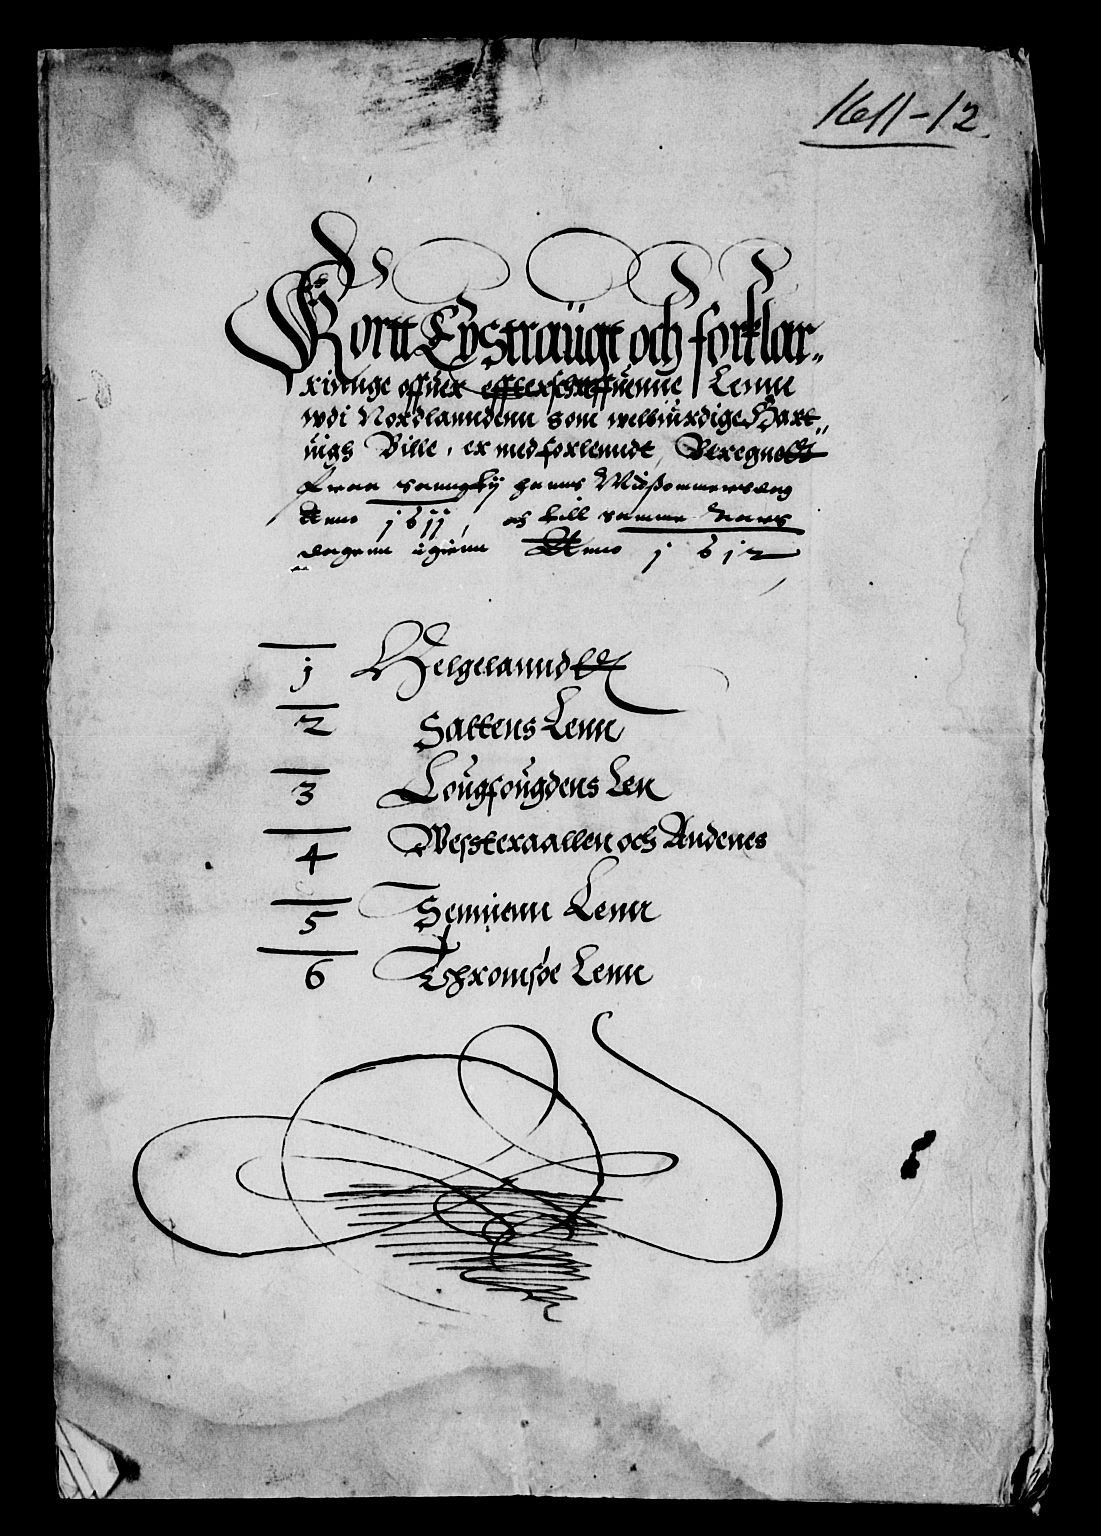 1611-12.
Kortt Exstraügt och forklar„
ringe offuer effterschreffuenne Lenn
wdi Nordlanndenn som welbiurdige Hart„
uigh Bille, er med forlenndt, Beregnedt
Fraa sanngty hanns Midsommersdag
Anno 1611, och till samme Aars
dagenn igienn Anno 1612
1 Helgelanndtt
2 Saltens Lenn
3 Lougfougdens Len
4 Westeraallen och Andenes
5 Senniens Lenn
6 Thromsøe Lenn